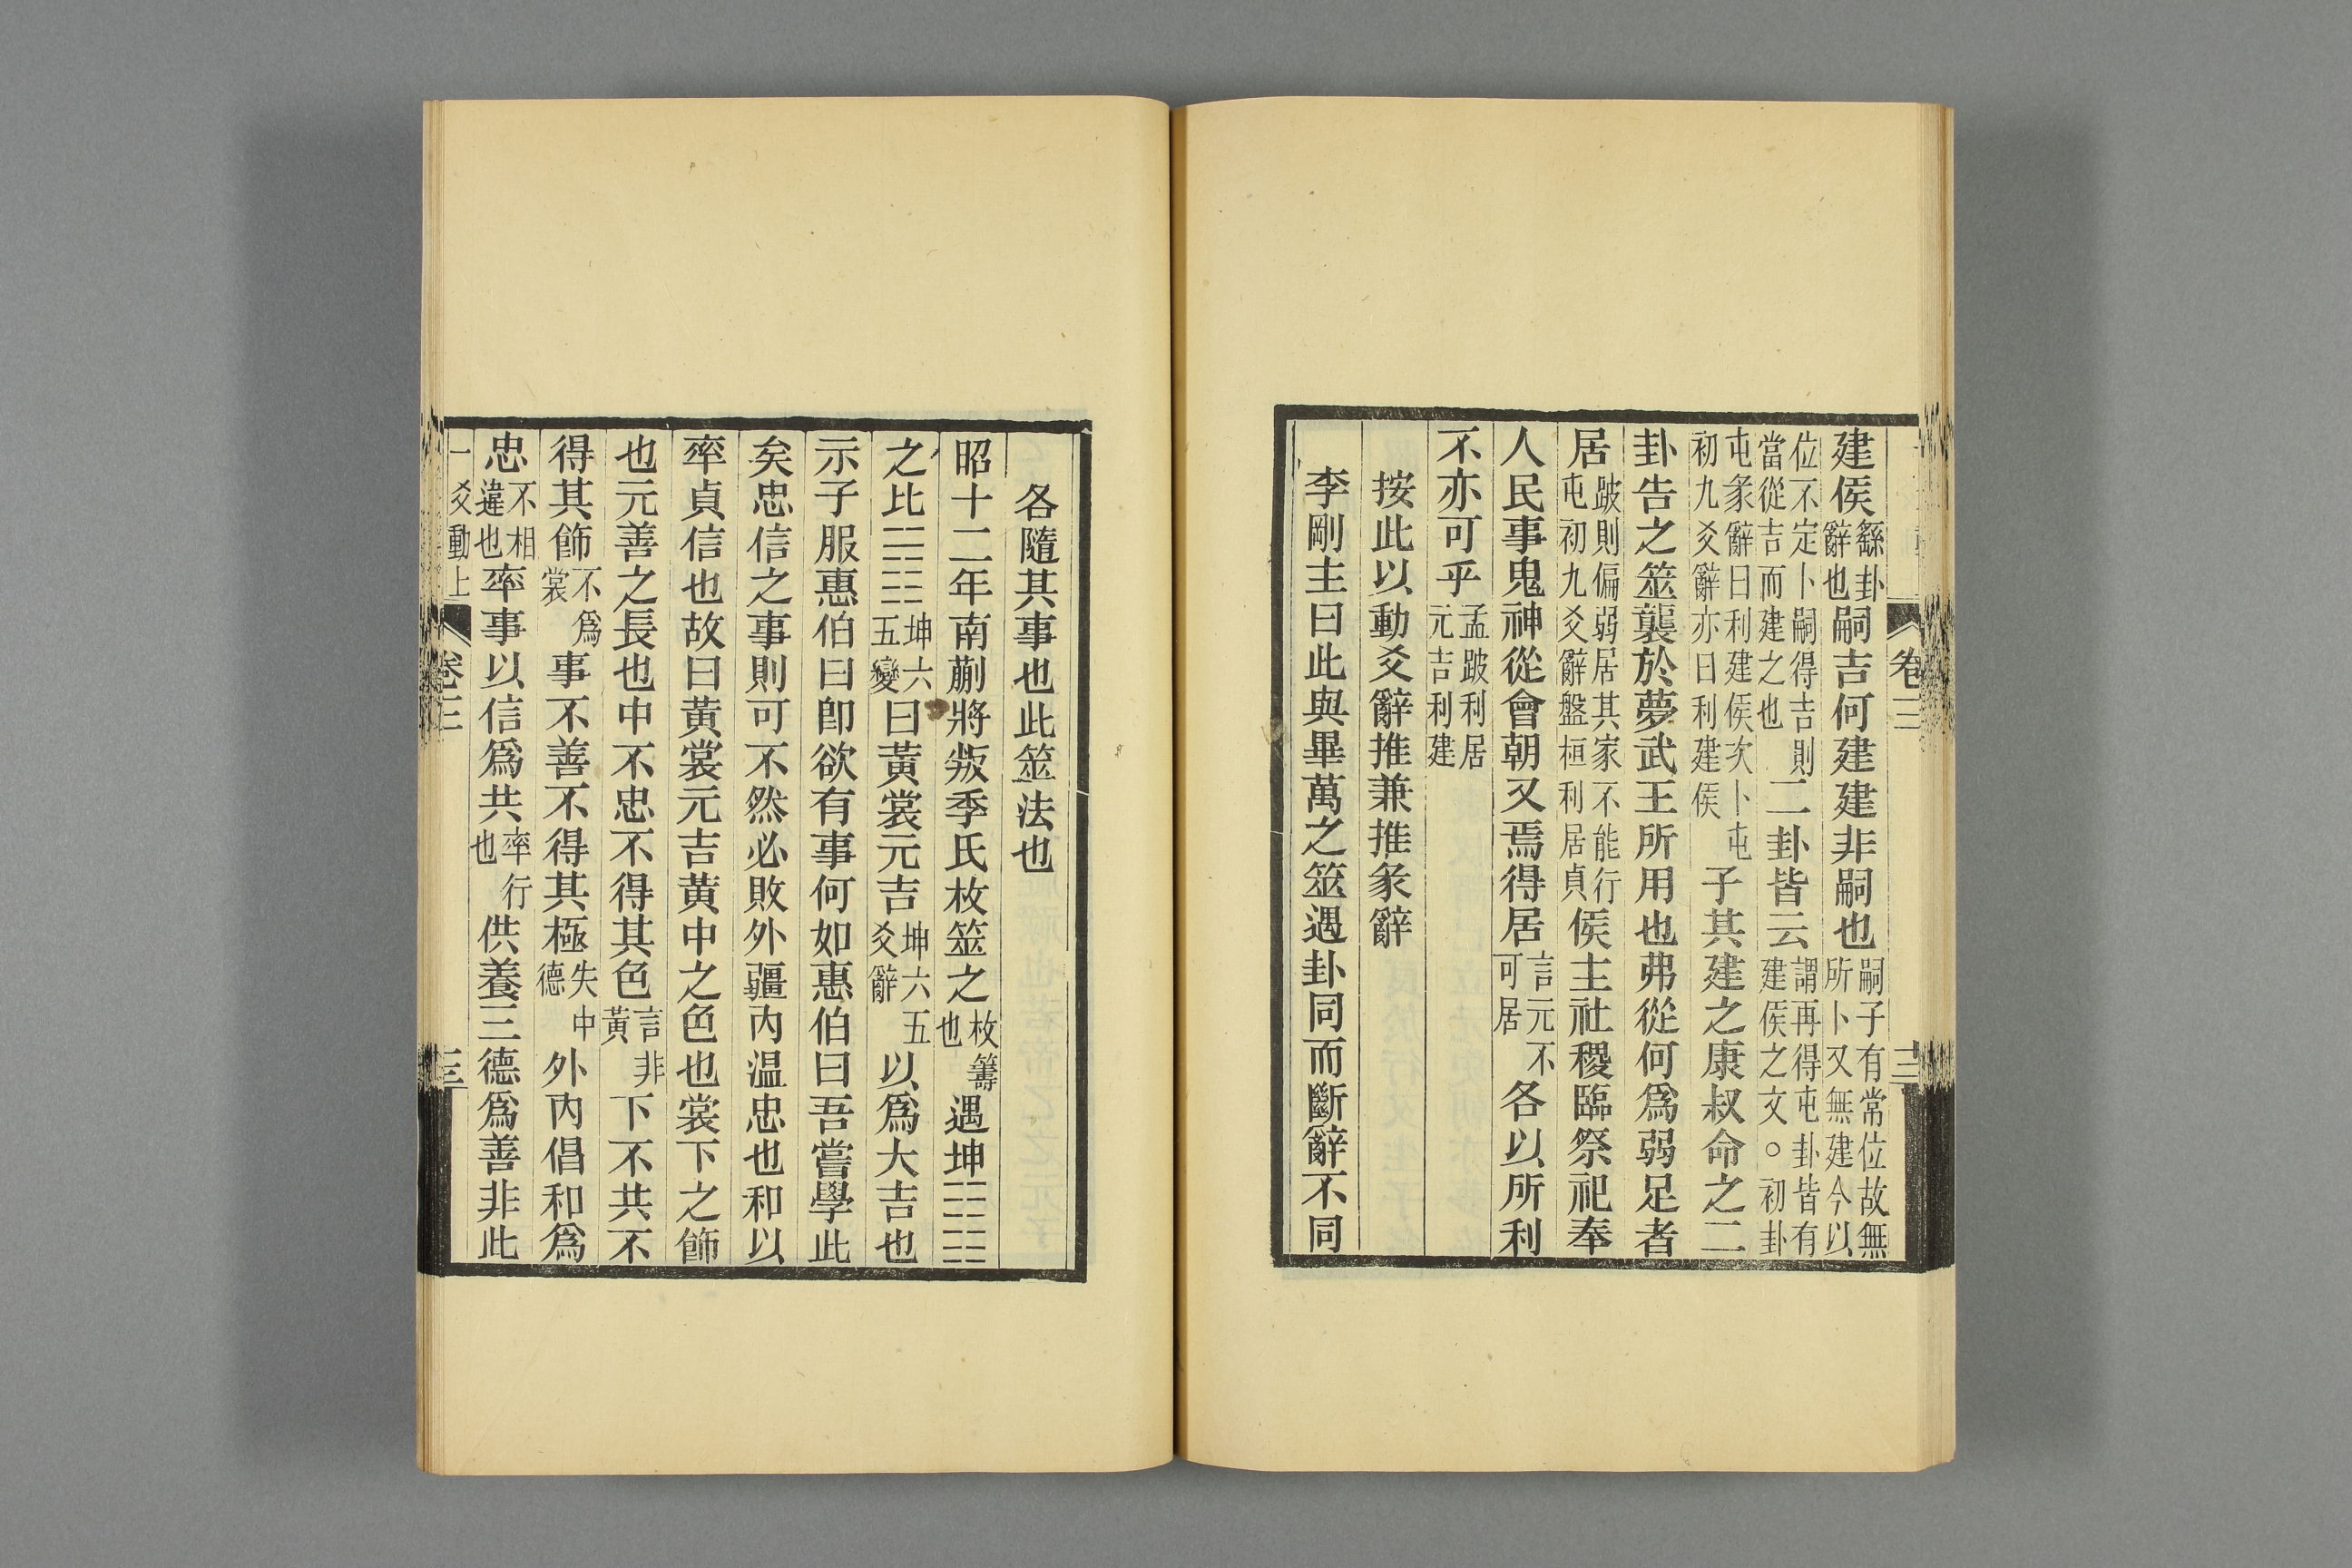 建侯繇卦辭也嗣吉何建建非嗣也嗣子有常位故無所卜又無建今以
位不定卜嗣得吉則當從吉而建之也二卦皆云謂再得屯卦皆有建侯之文○初卦
屯彖辭曰利建侯次卜屯初九爻辭亦曰利建侯子其建之康叔命之二
卦告之筮襲於夢武王所用也弗從何爲弱足者
居跛則偏弱居其家不能行屯初九爻辭盤桓利居貞侯主社稷臨祭祀奉
人民事鬼神從會朝又焉得居言元不可居各以所利
不亦可乎孟跛利居元吉利建
按此以動爻辭推兼推彖辭
李剛主曰此與畢萬之筮遇卦同而斷辭不同
卷二
各隨其事也此筮法也
昭十二年南蒯將叛季氏枚筮之枚籌也遇坤䷁
之比䷇坤六五變曰黃裳元吉坤六五爻辭以爲大吉也
示子服惠伯曰卽欲有事何如惠伯曰吾嘗學此
矣忠信之事則可不然必敗外疆內溫忠也和以
率貞信也故曰黃裳元吉黃中之色也裳下之飾
也元善之長也中不忠不得其色言非黃下不共不
得其飾不爲裳事不善不得其極失中德外內倡和爲
忠不相違也率事以信爲共率行也供養三德爲善非此
卷二